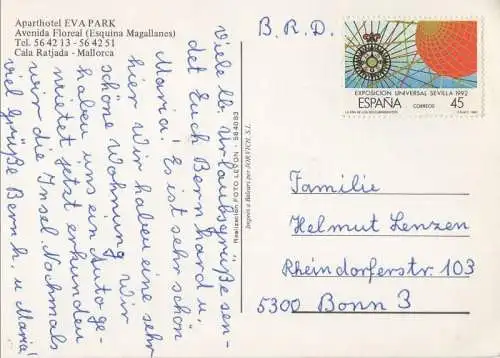 Aparthotel EVA PARK
Avenida Floreal (Esquina Magallanes)
Tel. 56 42 13 - 56 42 51
Cala Ratjada - Mallorca
Viele lb. Urlaubsgrüße sen-
det Euch Bernhard u.
Maria! Es ist sehr schön
hier. Wir haben eine sehr
schöne Wohnung. Wir
haben uns ein Auto ge-
mietet. Jetzt erkunden
wir die Insel. Nochmals
viel Grüße Bernh. u. Maria!
Realización FOTO LEÓN - 564083
Imprès a Balears per JORVICH, S.L.
B.R.D.
EXPOSICION UNIVERSAL SEVILLA 1992
ESPAÑA
CORREOS
45
LA ERA DE LOS DESCUBRIMIENTOS
Familie
Helmut Lenzen
Rheindorferstr. 103
5300 Bonn 3